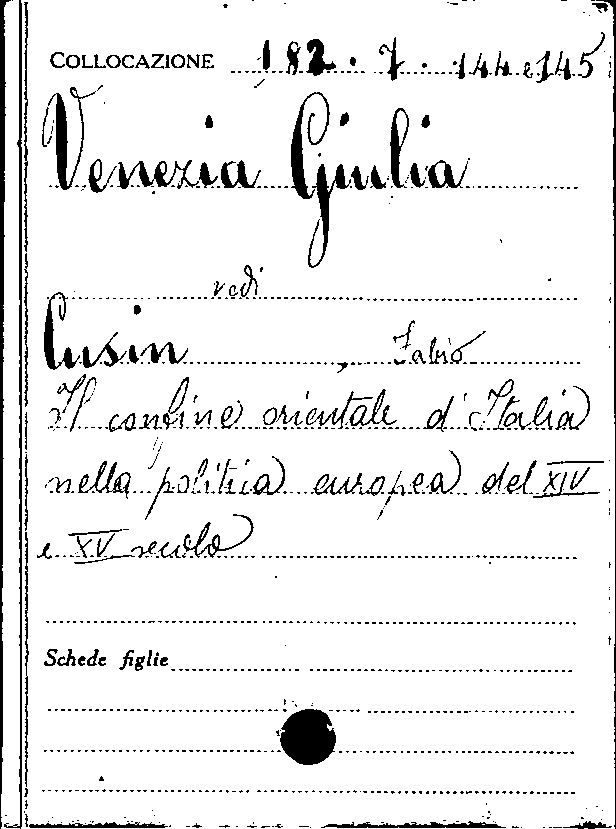 COLLOCAZIONE 182.7.144 e 145
Venezia Giulia
vedi
Cusin, Fabio
Il confine orientale d'Italia
nella politica europea del XIV
e XV secolo
Schede figlie